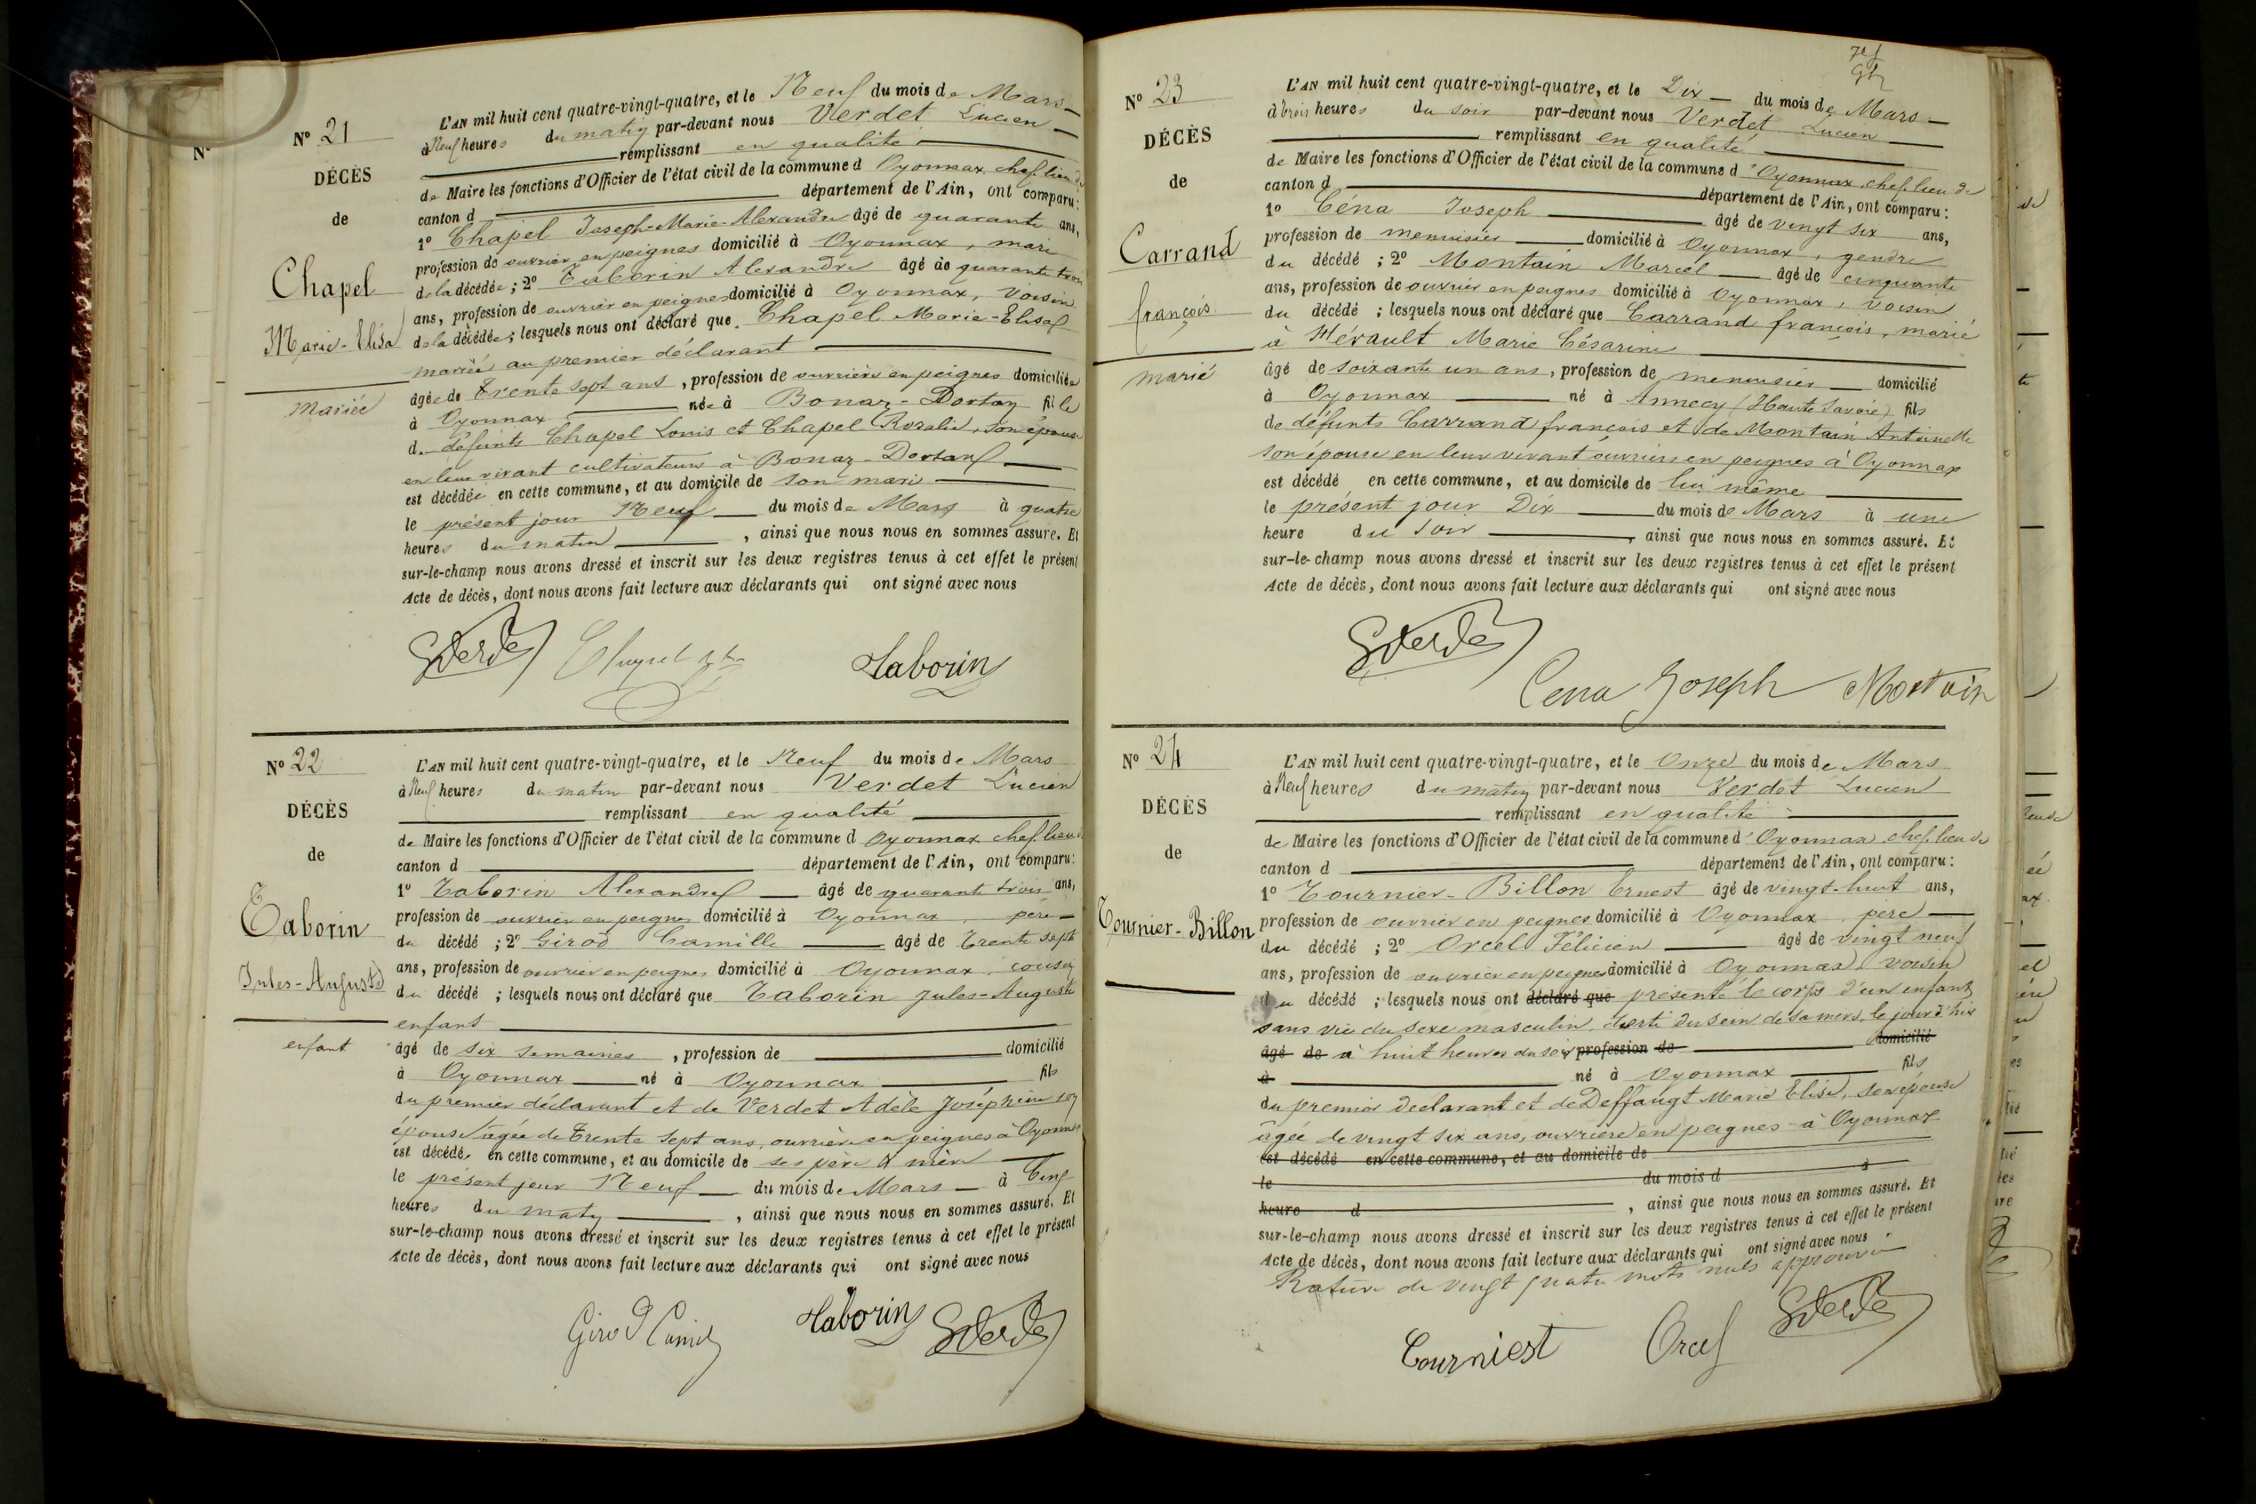 N° 21
DÉCÈS
de
Chapel
Marie-Elisa
mariée
L'AN mil huit cent quatre-vingt-quatre, et le Neuf du mois de Mars
à Neuf heures du matin par-devant nous Verdet Lucien
remplissant en qualité
de Maire les fonctions d'Officier de l'état civil de la commune d Oyonnax, chef lieu de
canton d département de l'Ain, ont comparu:
1° Chapel Joseph-Marie-Alexandre âgé de quarante ans,
profession de ouvrier en peignes domicilié à Oyonnax, mari
de la décédée; 2° Taborin Alexandre âgé de quarante trois
ans, profession de ouvrier en peignes domicilié à Oyonnax, voisin
de la décédée; lesquels nous ont déclaré que Chapel Marie-Elisa
mariée au premier déclarant
âgée de Trente sept ans, profession de ouvrière en peignes domiciliée
à Oyonnax née à Bonaz-Dortan fille
de défunts Chapel Louis et Chapel Rosalie, son épouse
en leur vivant cultivateurs à Bonaz-Dortan
est décédée en cette commune, et au domicile de son mari
le présent jour Neuf du mois de Mars à quatre
heures du matin, ainsi que nous nous en sommes assuré. Et
sur-le-champ nous avons dressé et inscrit sur les deux registres tenus à cet effet le présent
Acte de décès, dont nous avons fait lecture aux déclarants qui ont signé avec nous
Taborin
N° 22
DÉCÈS
de
Taborin
Jules-Auguste
enfant
L'AN mil huit cent quatre-vingt-quatre, et le Neuf du mois de Mars
à Neuf heures du matin par-devant nous Verdet Lucien
remplissant en qualité
de Maire les fonctions d'Officier de l'état civil de la commune d Oyonnax chef lieu de
canton d département de l'Ain, ont comparu:
1° Taborin Alexandre âgé de quarante trois ans,
profession de ouvrier en peignes domicilié à Oyonnax, père
du décédé; 2° Girod Camille âgé de Trente sept
ans, profession de ouvrier en peignes domicilié à Oyonnax, cousin
du décédé; lesquels nous ont déclaré que Taborin Jules-Auguste
enfant
âgé de six semaines, profession de domicilié
à Oyonnax né à Oyonnax fils
du premier déclarant et de Verdet Adèle Joséphine son
épouse âgée de Trente sept ans, ouvrière en peignes à Oyonnax
est décédé en cette commune, et au domicile de ses père & mère
le présent jour Neuf du mois de Mars à Cinq
heures du matin, ainsi que nous nous en sommes assuré. Et
sur-le-champ nous avons dressé et inscrit sur les deux registres tenus à cet effet le présent
Acte de décès, dont nous avons fait lecture aux déclarants qui ont signé avec nous
Girod Camille Taborin
N° 23
DÉCÈS
de
Carrand
françois
marié
L'AN mil huit cent quatre-vingt-quatre, et le Dix du mois de Mars
à trois heures du soir par-devant nous Verdet Lucien
remplissant en qualité
de Maire les fonctions d'Officier de l'état civil de la commune d'Oyonnax chef lieu de
canton d département de l'Ain, ont comparu:
1° Céna Joseph âgé de vingt six ans,
profession de menuisier domicilié à Oyonnax, gendre
du décédé; 2° Montain Marcel âgé de cinquante
ans, profession de ouvrier en peignes domicilié à Oyonnax, voisin
du décédé; lesquels nous ont déclaré que Carrand françois, marié
à Hérault Marie Césarine
âgé de soixante un ans, profession de menuisier domicilié
à Oyonnax né à Annecy (Haute Savoie) fils
de défunts Carrand françois et de Montain Antoinette
son épouse en leur vivant ouvriers en peignes à Oyonnax
est décédé en cette commune, et au domicile de lui même
le présent jour Dix du mois de Mars à une
heure du soir, ainsi que nous nous en sommes assuré. Et
sur-le-champ nous avons dressé et inscrit sur les deux registres tenus à cet effet le présent
Acte de décès, dont nous avons fait lecture aux déclarants qui ont signé avec nous
Cena Joseph Montain
N° 24
DÉCÈS
de
Tournier-Billon
L'AN mil huit cent quatre-vingt-quatre, et le Onze du mois de Mars
à Neuf heures du matin par-devant nous Verdet Lucien
remplissant en qualité
de Maire les fonctions d'Officier de l'état civil de la commune d'Oyonnax, chef lieu de
canton d département de l'Ain, ont comparu:
1° Tournier-Billon Ernest âgé de vingt-huit ans,
profession de ouvrier en peignes domicilié à Oyonnax, père
du décédé; 2° Orcel Félicien âgé de vingt neuf
ans, profession de ouvrier en peignes domicilié à Oyonnax, voisin
du décédé; lesquels nous ont déclaré que présenté le corps d'un enfant
sans vie du sexe masculin, sorti du sein de sa mère le jour d'hier
âgé de à huit heures du soir profession de domicilié
à né à Oyonnax fils
du premier déclarant et de Deffaugt Marie Elise, son épouse
âgée de vingt six ans, ouvrière en peignes à Oyonnax
est décédé en cette commune, et au domicile de
le du mois d à
heure d, ainsi que nous nous en sommes assuré. Et
sur-le-champ nous avons dressé et inscrit sur les deux registres tenus à cet effet le présent
Acte de décès, dont nous avons fait lecture aux déclarants qui ont signé avec nous
Rature de vingt quatre mots nuls approuvée
Tourniest Orcel